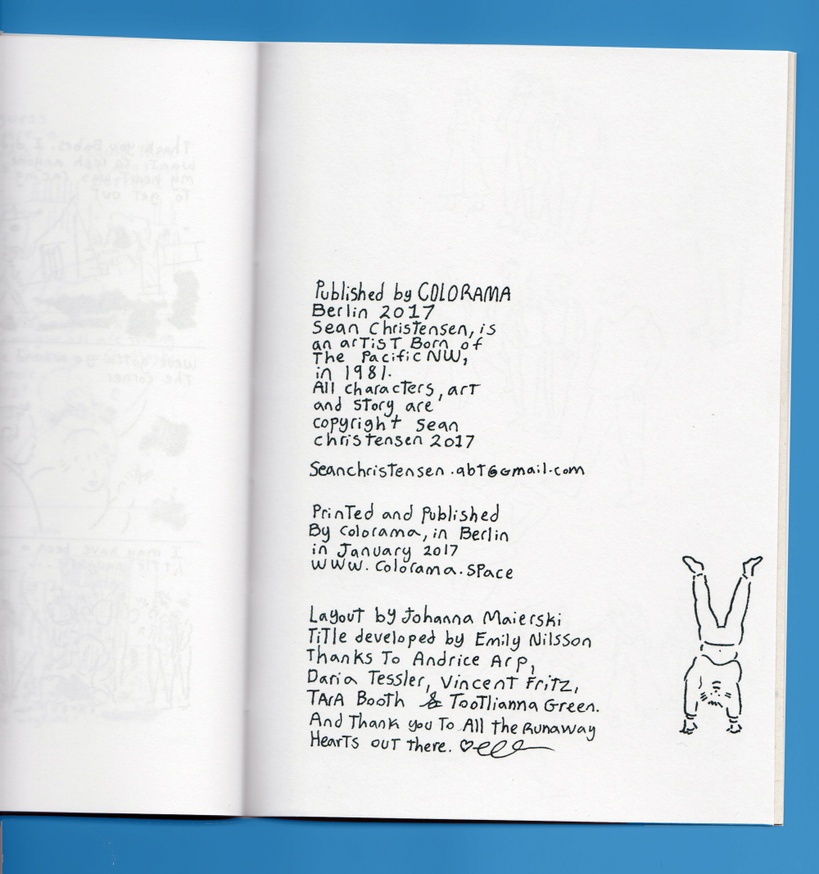 Published by COLORAMA
Berlin 2017
Sean Christensen, is
an artist Born of
The Pacific NW,
in 1981.
All characters, art
and story are
copyright Sean
christensen 2017
Seanchristensen.abt@gmail.com
Printed and Published
By Colorama, in Berlin
in January 2017
www.colorama.space
Layout by Johanna Maierski
Title developed by Emily Nilsson
Thanks To Andrice Arp,
Daria Tessler, Vincent Fritz,
TARA Booth & Tootlianna Green.
And Thank you To All the Runaway
Hearts out there.